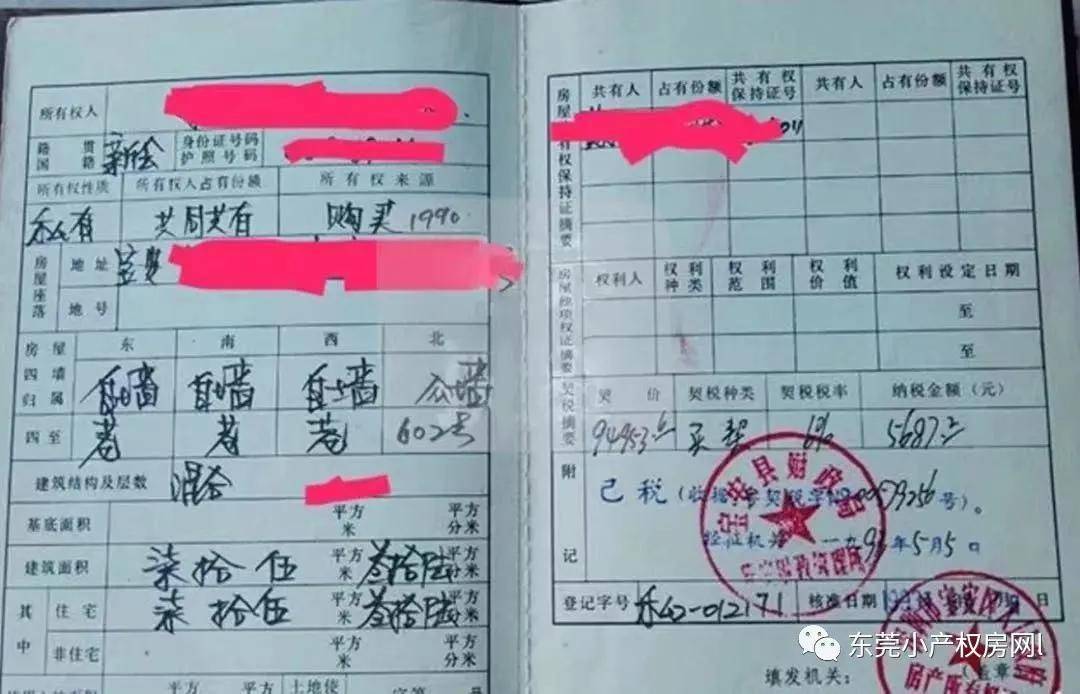 所有权人
籍贯 国籍 新会 身份证号码 护照号码
所有权性质 所有权人占有份额 所有权来源
私有 共同共有 购买1990
房屋座落 地址 宝安
地号
房屋 东 南 西 北
四墙归属 自墙 自墙 自墙 瓜墙
四至 巷 巷 巷 602号
建筑结构及层数 混合
基底面积 平方米 平方分米
建筑面积 柒拾伍 平方米 叁拾陆 平方分米
其中 住宅 柒拾伍 平方米 叁拾陆 平方分米
非住宅 平方米 平方分米
平方 平方 土地使
房屋 有权保持证摘要 共有人 占有份额 共有权保持证号 共有人 占有份额 共有权保持证号
房屋他项权证摘要 权利人 权利种类 权利范围 权利价值 权利设定日期
至
至
契税摘要 契价 契税种类 契税税率 纳税金额(元)
94953 买契 6% 5687
附记
已税(收据 契税字 号)。
验证机关 一九 年5月5日
宝安县财政局
登记字号 私心-012171 核准日期 日
填发机关: 盖章
东莞小产权房网l